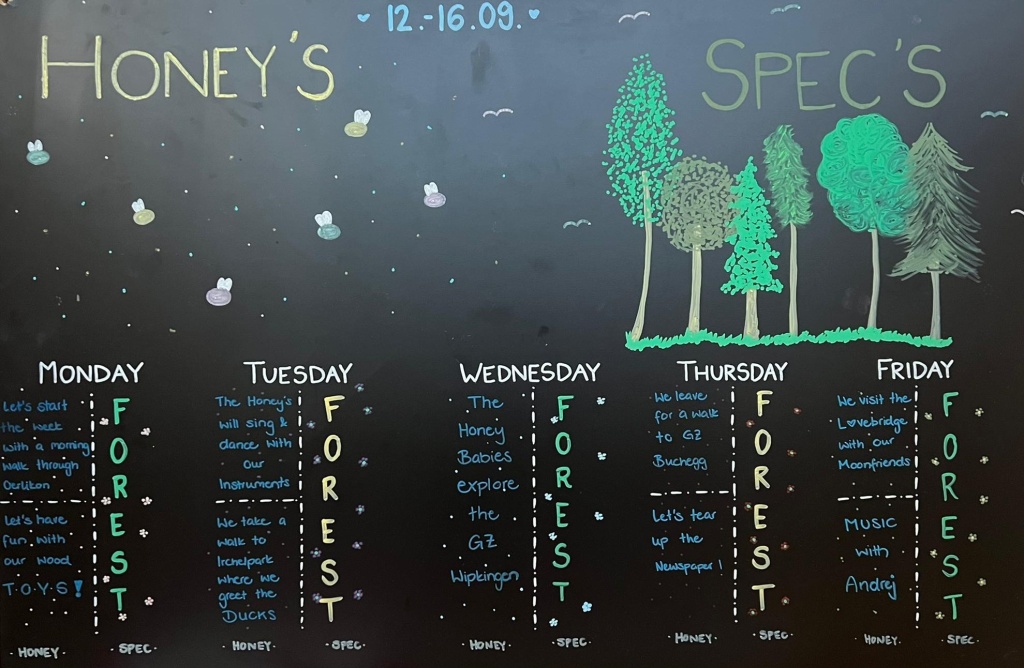 ♥ 12.-16.09. ♥
HONEY'S
SPEC'S
MONDAY
Let's start
the week
with a morning
walk through
Oerlikon
Let's have
fun with
our wood
T.O.Y.S!
FOREST
·HONEY·
·SPEC·
TUESDAY
The Honey's
will sing &
dance with
our
Instruments
We take a
walk to
Irchelpark
where we
greet the
DUCKS
FOREST
·HONEY·
·SPEC·
WEDNESDAY
The
Honey
Babies
explore
the
GZ
Wipkingen
FOREST
·HONEY·
·SPEC·
THURSDAY
We leave
for a walk
to GZ
Buchegg
Let's tear
up the
Newspaper!
FOREST
·HONEY·
·SPEC·
FRIDAY
We visit the
L♥vebridge
with our
Moonfriends
MUSIC
with
Andrej
FOREST
·HONEY·
·SPEC·